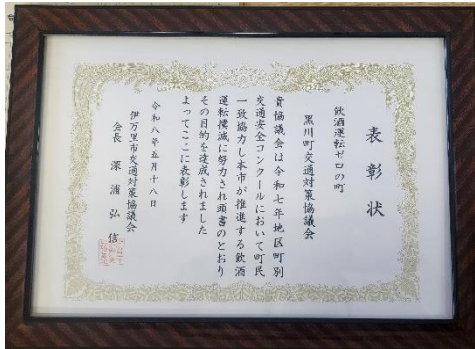 表彰状
飲酒運転ゼロの町
黒川町交通対策協議会
貴協議会は令和七年地区町別
交通安全コンクールにおいて町民
一致協力し本市が推進する飲酒
運転撲滅に努力され頭書のとおり
その目的を達成されました
よってここに表彰します
令和八年五月十八日
伊万里市交通対策協議会
会長 深浦弘信